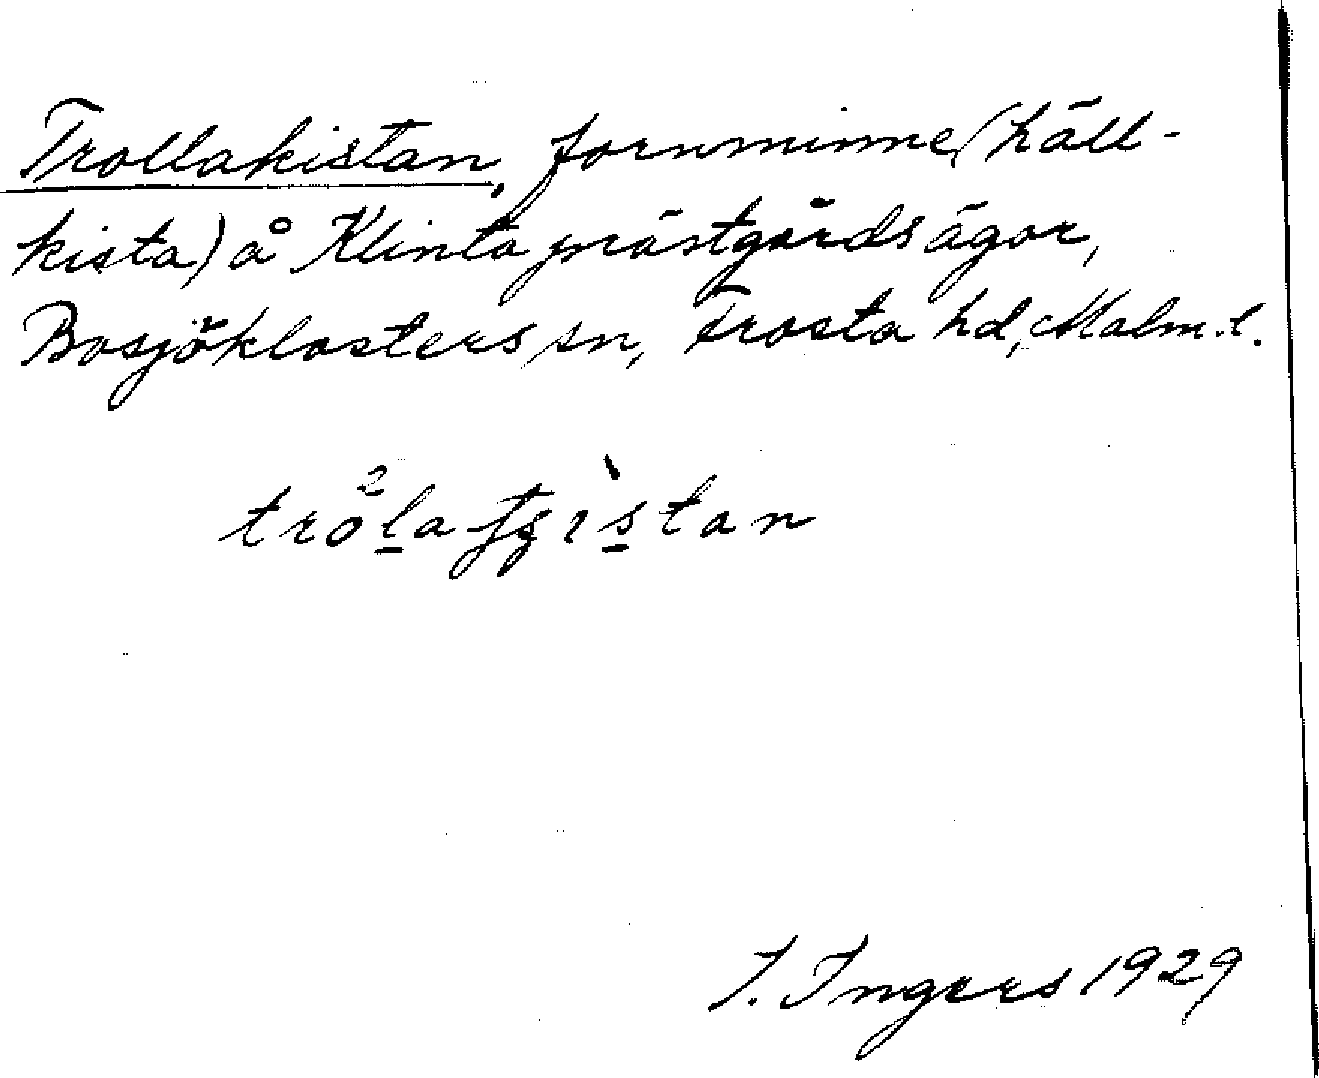 Trollakistan, fornminne (häll-
kista) å Klinta prästgårds ägor,
Bosjöklosters sn, Frosta hd, Malm. l.
I. Ingers 1929